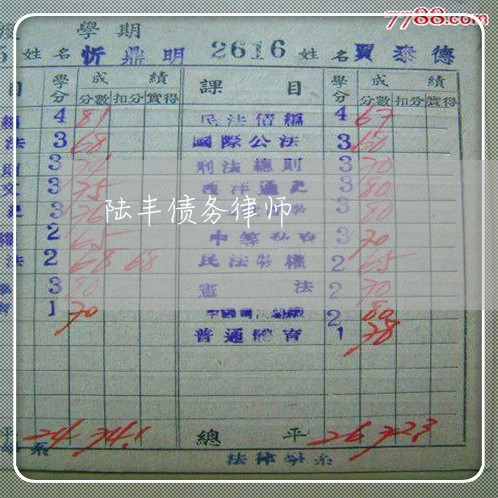 7788.com
學期
5 姓名 忻鼎明 2616 姓名 賈泰德
目 學分 成績 課目 學分 成績
分數 扣分 實得 分數 扣分 實得
4 81 民法債編 4 67
法 3 68 國際公法 3 60
3 刑法總則 3 70
3 75 西洋通史 3 80
3 3 80
2 65 3 70
法 2 68 68 民法物權 2 65
3 80 憲法 2 70
1 70 2 80
普通體育 1 78
陆丰债务律师
平 24 74.1 總平 26 72.3
系 法律學系